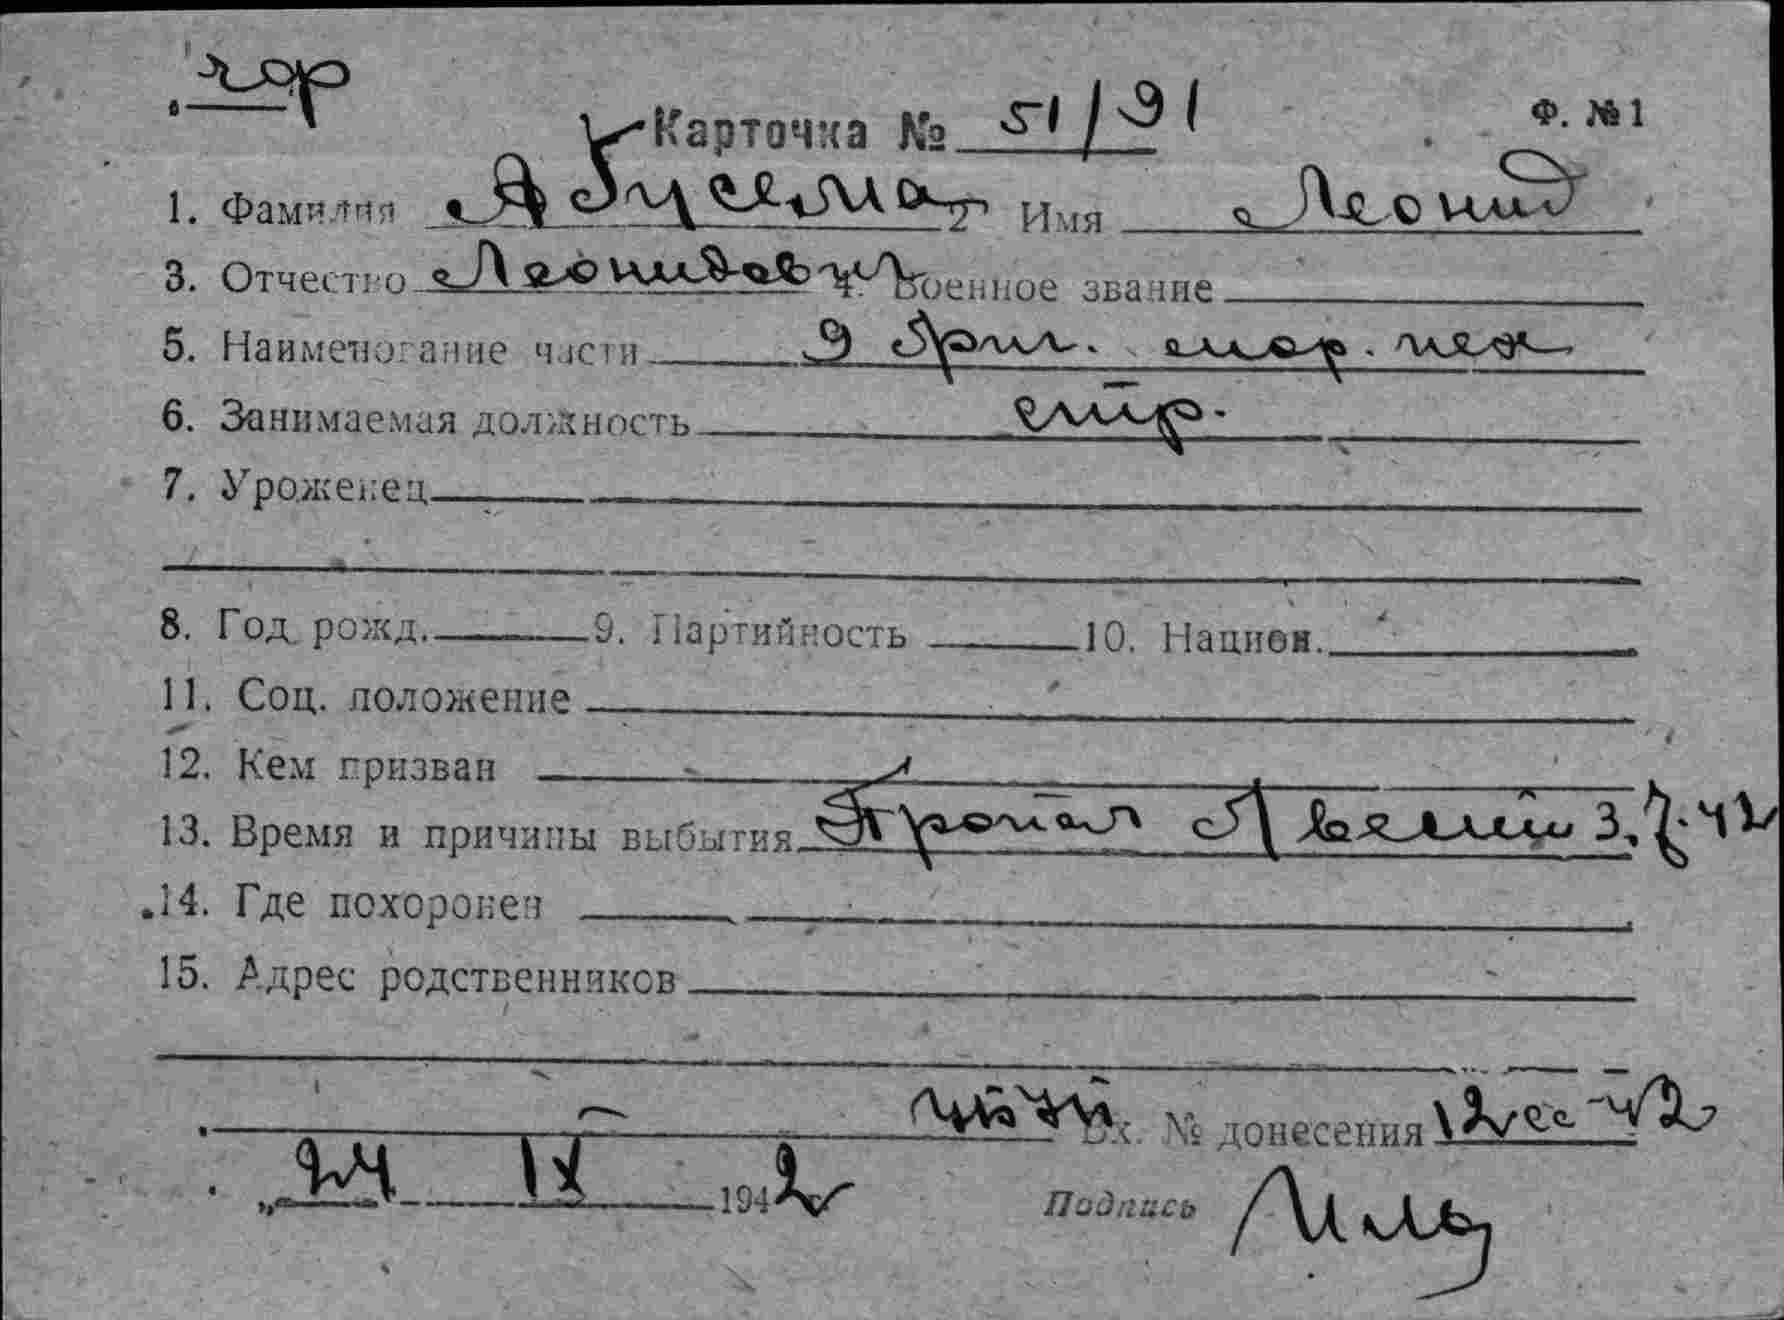 Карточка № 51/91 Ф. № 1
1. Фамилия 2 Имя Леонид
3. Отчество Леонидович 4. Военное звание
5. Наименование части 9 бриг. мор. пех
6. Занимаемая должность стр.
7. Уроженец
8. Год рожд. 9. Партийность 10. Национ.
11. Соц. положение
12. Кем призван
13. Время и причины выбытия Пропал 3.7.42
14. Где похоронен
15. Адрес родственников
Вх. № донесения 12сс-42
„24 IX 1942
Подпись